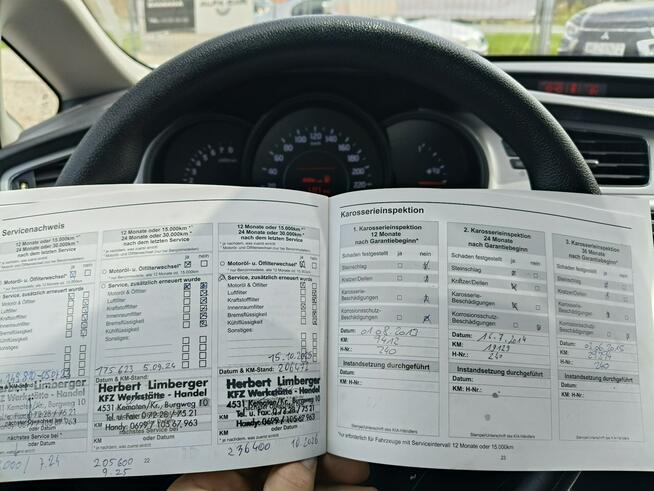 Servicenachweis
12 Monate oder 15.000km*
24 Monate oder 30.000km
nach dem letzten Service
* je nachdem, was zuerst eintritt
ja nein
Motoröl- u. Ölfilterwechsel*
Service, zusätzlich erneuert wurde
Luftfilter
Kraftstofffilter
Innenraumfilter
Bremsflüssigkeit
Kühlflüssigkeit
Sonstiges:
Herbert Limberger
KFZ Werkstätte - Handel
nächstes Service bei
oder Datum
7.24
12 Monate oder 15.000km*
24 Monate oder 30.000km
nach dem letzten Service
* je nachdem, was zuerst eintritt
ja nein
Motoröl- u. Ölfilterwechsel*
Service, zusätzlich erneuert wurde
Motoröl & Ölfilter
Luftfilter
Kraftstofffilter
Innenraumfilter
Bremsflüssigkeit
Kühlflüssigkeit
Sonstiges:
175 623 5.09.24
Datum & KM-Stand:
Herbert Limberger
KFZ Werkstätte - Handel
4531 Kematen/Kr., Burgweg 10
Tel. u. Fax: 0 72 28 / 75 21
Handy: 0699 / 105 67 963
nächstes Service bei
KM oder Datum
205600
9.25
22
12 Monate oder 15.000km*
24 Monate oder 30.000km
nach dem letzten Service
* je nachdem, was zuerst eintritt
ja nein
Motoröl- u. Ölfilterwechsel*
Service, zusätzlich erneuert wurde
Motoröl & Ölfilter
Luftfilter
Kraftstofffilter
Innenraumfilter
Bremsflüssigkeit
Kühlflüssigkeit
Sonstiges:
15.10.2025
Datum & KM-Stand: 206472
Herbert Limberger
KFZ Werkstätte - Handel
4531 Kematen/Kr., Burgweg 10
Tel. u. Fax: 0 72 28 / 75 21
Handy: 0699 / 105 67 963
KM oder Datum
236400 10.2026
Karosserieinspektion
1. Karosserieinspektion
12 Monate
nach Garantiebeginn*
Schaden festgestellt ja nein
Steinschlag
Kratzer/Dellen
Karosserie-
Beschädigungen
Korrosionsschutz-
Beschädigungen
Datum: 01.08.2013
KM: 9412
H-Nr.: 240
Instandsetzung durchgeführt
Datum:
KM:
H-Nr.:
Stempel/Unterschrift des KIA-Händlers
*Nur erforderlich für Fahrzeuge mit Serviceintervall 12 Monate oder 15.000km
2. Karosserieinspektion
24 Monate
nach Garantiebeginn
Schaden festgestellt ja nein
Steinschlag
Kratzer/Dellen
Karosserie-
Beschädigungen
Korrosionsschutz-
Beschädigungen
Datum: 16.7.2014
KM: 19129
H-Nr.: 240
Instandsetzung durchgeführt
Datum:
KM:
H-Nr.:
Stempel/Unterschrift des KIA-Händlers
23
3. Karosserieinspektion
36 Monate
nach Garantiebeginn
Schaden festgestellt ja nein
Steinschlag
Kratzer/Dellen
Karosserie-
Beschädigungen
Korrosionsschutz-
Beschädigungen
Datum:
KM:
H-Nr.: 240
Instandsetzung durchgeführt
Datum:
KM:
H-Nr.:
Stempel/Unterschrift des KIA-Händlers
km/h